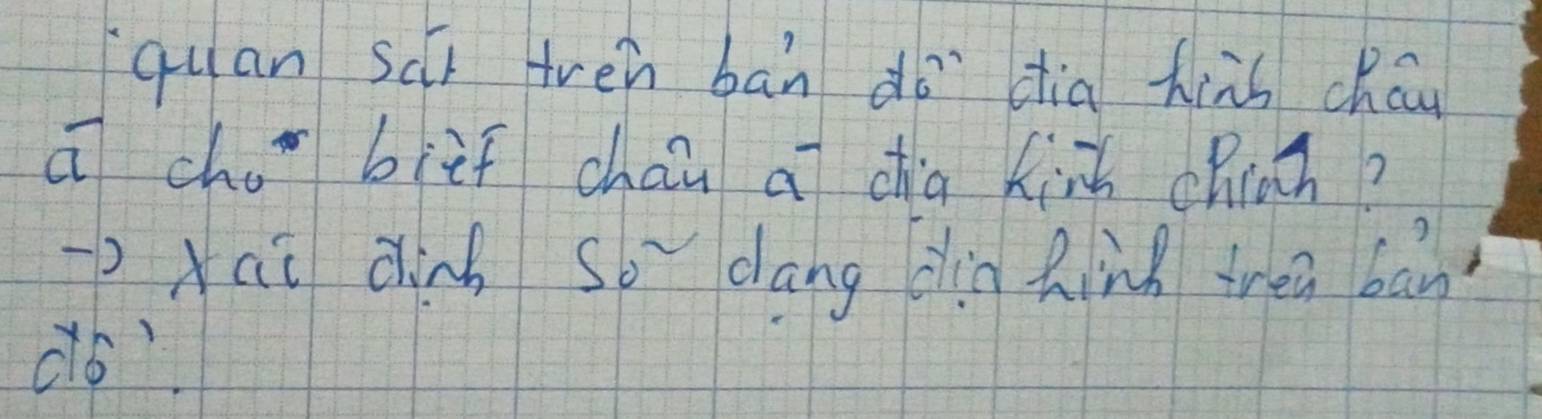 quan sát trên bản đồ địa hình châu
á cho biết châu á địa hình chính ?
-> xác định số dạng địa hình trên bản
đồ.